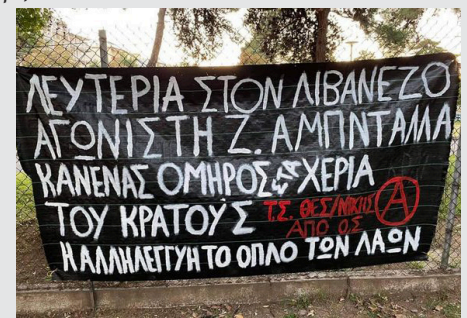 ΛΕΥΤΕΡΙΑ ΣΤΟΝ ΛΙΒΑΝΕΖΟ
ΑΓΩΝΙΣΤΗ Ζ. ΑΜΠΝΤΑΛΛΑ
ΚΑΝΕΝΑΣ ΟΜΗΡΟΣ στα ΧΕΡΙΑ
ΤΟΥ ΚΡΑΤΟΥΣ Τ.Σ. ΘΕΣ/ΝΙΚΗΣ Α
ΑΠΟ Ο.Σ
Η ΑΛΛΗΛΕΓΓΥΗ ΤΟ ΟΠΛΟ ΤΩΝ ΛΑΩΝ